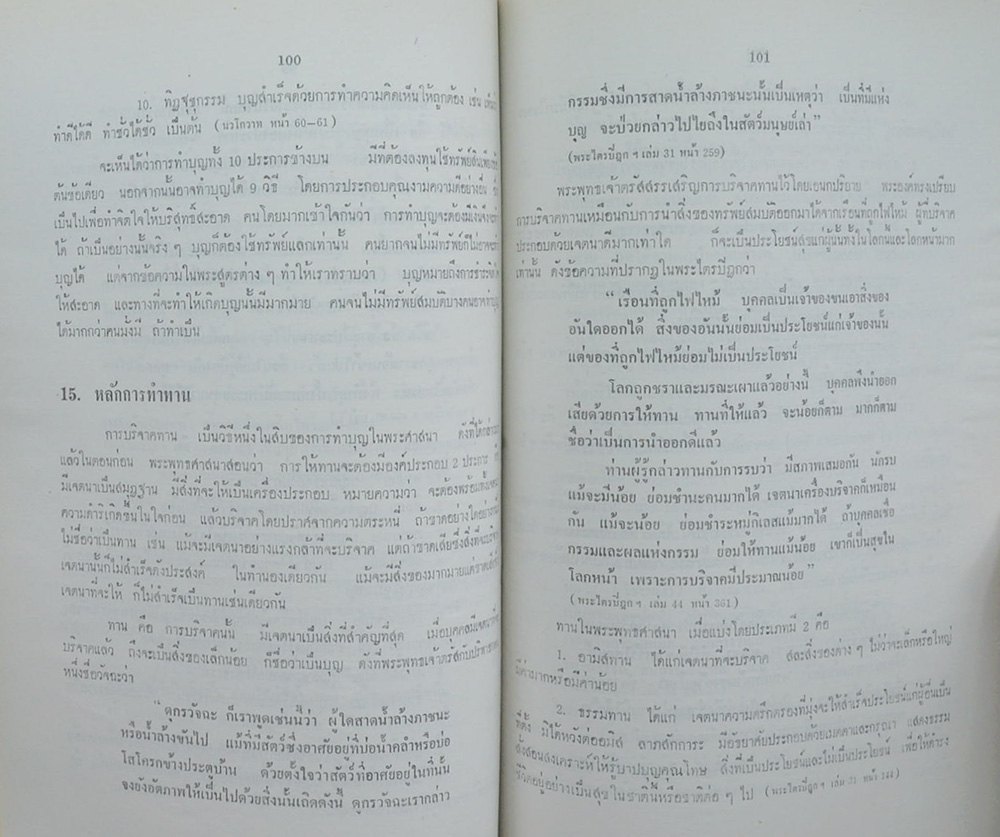 100
10. ทิฏฐุชุกรรม บุญสำเร็จด้วยการทำความคิดเห็นให้ถูกต้อง เช่น
ทำดีได้ดี ทำชั่วได้ชั่ว เป็นต้น (นวโกวาท หน้า 60–61)
จะเห็นได้ว่าการทำบุญทั้ง 10 ประการข้างบน มีที่ต้องลงทุนใช้ทรัพย์สิน
ต้นข้อเดียว นอกจากนั้นอาจทำบุญได้ 9 วิธี โดยการประกอบคุณงามความดีอย่างอื่น
เป็นไปเพื่อทำจิตใจให้บริสุทธิ์สะอาด คนโดยมากเข้าใจกันว่า การทำบุญจะต้องมีเงินจึง
ได้ ถ้าเป็นอย่างนั้นจริง ๆ บุญก็ต้องใช้ทรัพย์แลกเท่านั้น คนยากจนไม่มีทรัพย์ก็ไม่อาจ
บุญได้ แต่จากข้อความในพระสูตรต่าง ๆ ทำให้เราทราบว่า บุญหมายถึงการชำระ
ให้สะอาด และทางที่จะทำให้เกิดบุญนั้นมีมากมาย คนจนไม่มีทรัพย์สมบัติบางคนอาจทำบุญ
ได้มากกว่าคนมั่งมี ถ้าทำเป็น
15. หลักการทำทาน
การบริจาคทาน เป็นวิธีหนึ่งในสิบของการทำบุญในพระศาสนา ดังที่ได้กล่าว
แล้วในตอนก่อน พระพุทธศาสนาสอนว่า การให้ทานจะต้องมีองค์ประกอบ 2 ประการ
มีเจตนาเป็นสมุฏฐาน มีสิ่งที่จะให้เป็นเครื่องประกอบ หมายความว่า จะต้องพร้อมทั้ง
ความดำริเกิดขึ้นในใจก่อน แล้วบริจาคโดยปราศจากความตระหนี่ ถ้าขาดอย่างใดอย่าง
ไม่ชื่อว่าเป็นทาน เช่น แม้จะมีเจตนาอย่างแรงกล้าที่จะบริจาค แต่ถ้าขาดเสียซึ่งสิ่งที่จะบริจาค
เจตนานั้นก็ไม่สำเร็จดังประสงค์ ในทำนองเดียวกัน แม้จะมีสิ่งของมากมายแต่ขาด
เจตนาที่จะให้ ก็ไม่สำเร็จเป็นทานเช่นเดียวกัน
ทาน คือ การบริจาคนั้น มีเจตนาเป็นสิ่งที่สำคัญที่สุด เมื่อบุคคลมีเจตนา
บริจาคแล้ว ถึงจะเป็นสิ่งของเล็กน้อย ก็ชื่อว่าเป็นบุญ ดังที่พระพุทธเจ้าตรัสกับ
หนึ่งชื่อวัจฉะว่า
"ดูกรวัจฉะ ก็เราพูดเช่นนี้ว่า ผู้ใดสาดน้ำล้างภาชนะ
หรือน้ำล้างขันไป แม้ที่มีสัตว์ซึ่งอาศัยอยู่ที่บ่อน้ำคลำหรือบ่อ
โสโครกข้างประตูบ้าน ด้วยตั้งใจว่าสัตว์ที่อาศัยอยู่ในที่นั้น
จงยังอัตภาพให้เป็นไปด้วยสิ่งนั้นเถิดดังนี้ ดูกรวัจฉะเรากล่าว
101
กรรมซึ่งมีการสาดน้ำล้างภาชนะนั้นเป็นเหตุว่า เป็นที่มีแห่ง
บุญ จะป่วยกล่าวไปใยถึงในสัตว์มนุษย์เล่า"
(พระไตรปิฎก ฯ เล่ม 31 หน้า 259)
พระพุทธเจ้าตรัสสรรเสริญการบริจาคทานไว้โดยเอนกปริยาย พระองค์ทรงเปรียบ
การบริจาคทานเหมือนกับการนำสิ่งของทรัพย์สมบัติออกมาได้จากเรือนที่ถูกไฟไหม้ ผู้ที่บริจาค
ประกอบด้วยเจตนาดีมากเท่าใด ก็จะเป็นประโยชน์สุขแก่ผู้นั้นทั้งในโลกนี้และโลกหน้ามาก
เท่านั้น ดังข้อความที่ปรากฏในพระไตรปิฎกว่า
"เรือนที่ถูกไฟไหม้ บุคคลเป็นเจ้าของขนเอาสิ่งของ
อันใดออกได้ สิ่งของอันนั้นย่อมเป็นประโยชน์แก่เจ้าของนั้น
แต่ของที่ถูกไฟไหม้ย่อมไม่เป็นประโยชน์
โลกถูกชราและมรณะเผาแล้วอย่างนี้ บุคคลพึงนำออก
เสียด้วยการให้ทาน ทานที่ให้แล้ว จะน้อยก็ตาม มากก็ตาม
ชื่อว่าเป็นการนำออกดีแล้ว
ท่านผู้รู้กล่าวทานกับการรบว่า มีสภาพเสมอกัน นักรบ
แม้จะมีน้อย ย่อมชำนะคนมากได้ เจตนาเครื่องบริจาคก็เหมือน
กัน แม้จะน้อย ย่อมชำระหมู่กิเลสแม้มากได้ ถ้าบุคคลเชื่อ
กรรมและผลแห่งกรรม ย่อมให้ทานแม้น้อย เขาก็เป็นสุขใน
โลกหน้า เพราะการบริจาคมีประมาณน้อย"
(พระไตรปิฎก ฯ เล่ม 44 หน้า 361)
ทานในพระพุทธศาสนา เมื่อแบ่งโดยประเภทมี 2 คือ
1. อามิสทาน ได้แก่เจตนาที่จะบริจาค สละสิ่งของต่าง ๆ ไม่ว่าจะเล็กหรือใหญ่
มีค่ามากหรือมีค่าน้อย
2. ธรรมทาน ได้แก่ เจตนาความตรึกตรองที่มุ่งจะให้สำเร็จประโยชน์แก่ผู้อื่นเป็น
ที่ตั้ง มิได้หวังต่ออมิส ลาภสักการะ มีอัธยาศัยประกอบด้วยเมตตาและกรุณา แสดงธรรม
สั่งสอนสงเคราะห์ให้รู้บาปบุญคุณโทษ สิ่งที่เป็นประโยชน์และไม่เป็นประโยชน์ เพื่อให้ดำรง
ชีวิตอยู่อย่างเป็นสุขในชาตินี้หรือชาติต่อ ๆ ไป (พระไตรปิฎก ฯ เล่ม 31 หน้า 144)